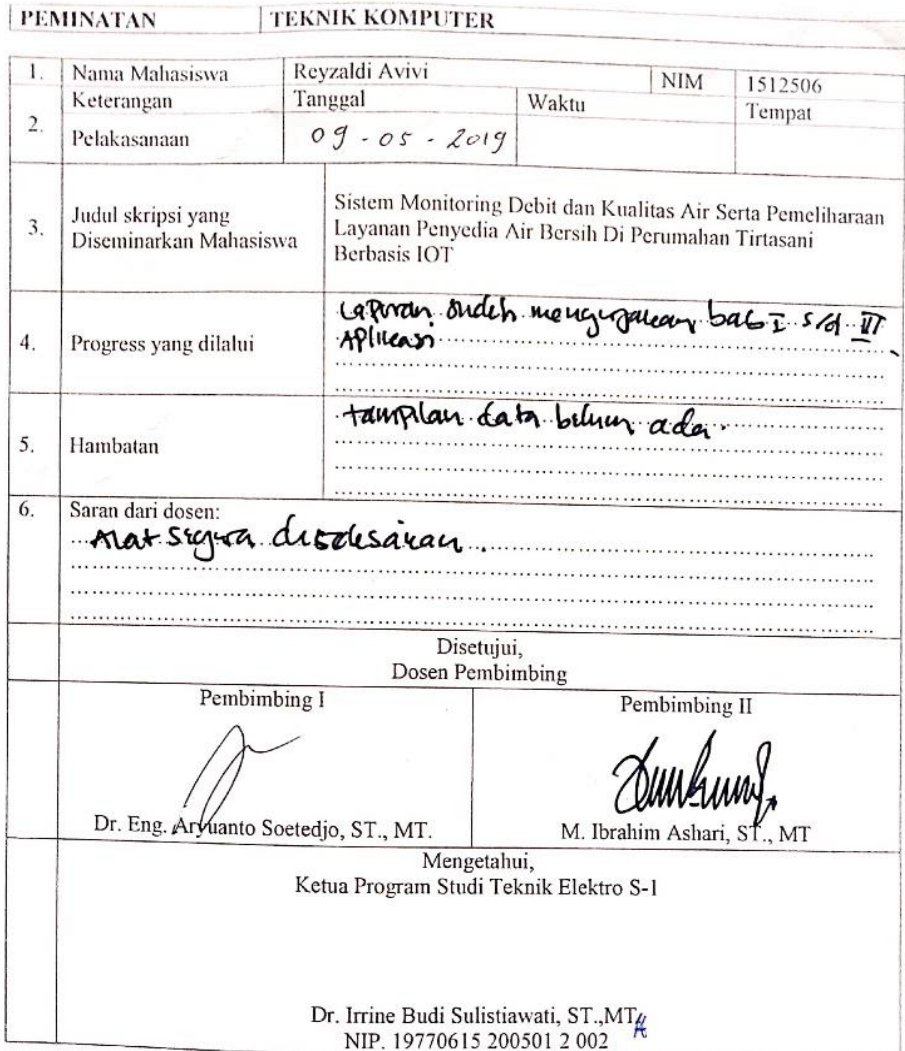 PEMINATAN TEKNIK KOMPUTER
1. Nama Mahasiswa Reyzaldi Avivi NIM 1512506
2. Keterangan Tanggal Waktu Tempat
Pelakasanaan 09 - 05 - 2019
3. Judul skripsi yang
Diseminarkan Mahasiswa
Sistem Monitoring Debit dan Kualitas Air Serta Pemeliharaan
Layanan Penyedia Air Bersih Di Perumahan Tirtasani
Berbasis IOT
4. Progress yang dilalui
Laporan sudah mengerjakan bab I s/d III
Aplikasi
5. Hambatan
tampilan data belum ada.
6. Saran dari dosen:
Alat segera diselesaikan.
Disetujui,
Dosen Pembimbing
Pembimbing I
Dr. Eng. Aryuanto Soetedjo, ST., MT.
Pembimbing II
M. Ibrahim Ashari, ST., MT
Mengetahui,
Ketua Program Studi Teknik Elektro S-1
Dr. Irrine Budi Sulistiawati, ST.,MT
NIP. 19770615 200501 2 002